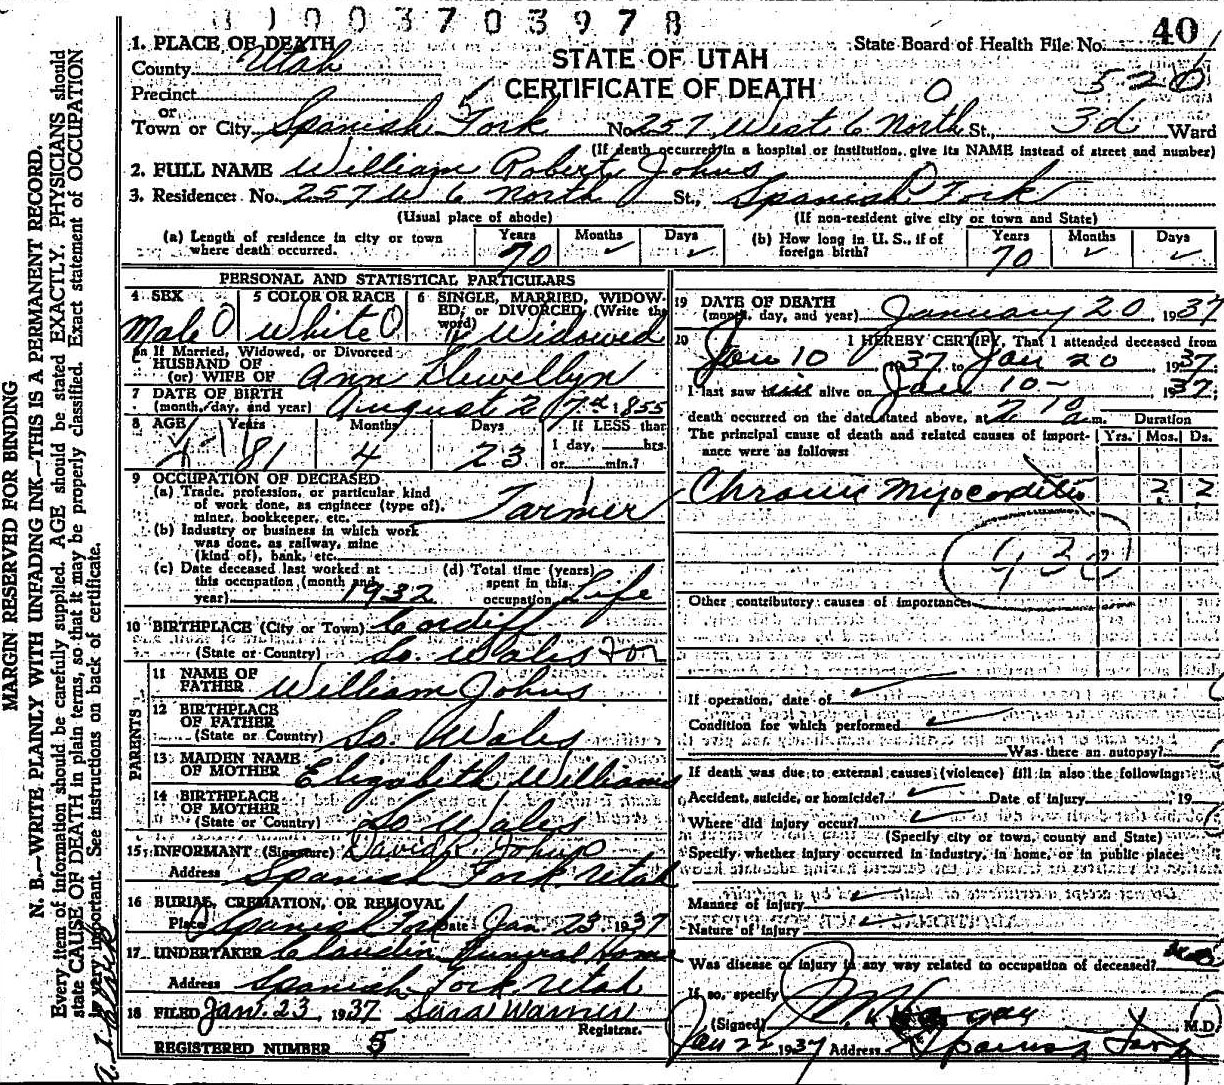 1003703978
40
1. PLACE OF DEATH
County Utah
STATE OF UTAH
State Board of Health File No.
526
Precinct
CERTIFICATE OF DEATH
0
or
Town or City Spanish Fork No. 257 West 6 North St., 3d Ward
(If death occurred in a hospital or institution, give its NAME instead of street and number)
2. FULL NAME William Robert Johns
3. Residence: No. 257 W 6 North St., Spanish Fork
(Usual place of abode) (If non-resident give city or town and State)
(a) Length of residence in city or town where death occurred. Years 70 Months ✓ Days ✓
(b) How long in U. S., if of foreign birth? Years 70 Months ✓ Days ✓
PERSONAL AND STATISTICAL PARTICULARS
4 SEX Male 0
5 COLOR OR RACE White 0
6 SINGLE, MARRIED, WIDOWED, or DIVORCED, (Write the word) Widowed
If Married, Widowed, or Divorced
HUSBAND OF
(or) WIFE OF Ann Llewellyn
7 DATE OF BIRTH
(month, day, and year) August 27th 1855
8 AGE Years 81 Months 4 Days 23
If LESS than
1 day, hrs.
or min.?
9 OCCUPATION OF DECEASED
(a) Trade, profession, or particular kind
of work done, as engineer (type of),
miner, bookkeeper, etc. Farmer
(b) Industry or business in which work
was done, as railway, mine
(kind of), bank, etc.
(c) Date deceased last worked at
this occupation (month and
year) 1932
(d) Total time (years)
spent in this
occupation Life
10 BIRTHPLACE (City or Town) Cardiff
(State or Country) So. Wales
PARENTS
11 NAME OF
FATHER William Johns
12 BIRTHPLACE
OF FATHER
(State or Country) So. Wales
13 MAIDEN NAME
OF MOTHER Elizabeth Williams
14 BIRTHPLACE
OF MOTHER
(State or Country) So. Wales
15 INFORMANT (Signature) David R. Johns
Address Spanish Fork Utah
16 BURIAL, CREMATION, OR REMOVAL
Place Spanish Fork Date Jan. 23 1937
17 UNDERTAKER Claudin Funeral Home
Address Spanish Fork Utah
18 FILED Jan. 23 1937 Sara Warner
Registrar.
REGISTERED NUMBER 5
19 DATE OF DEATH
(month, day, and year) January 20 1937
20 I HEREBY CERTIFY, That I attended deceased from
Jan 10 1937, to Jan 20 1937.
I last saw him alive on Jan 10- 1937.
death occurred on the date stated above, at 2 a m.
Duration
The principal cause of death and related causes of importance were as follows:
Yrs. Mos. Ds.
Chronic Myocarditis ? ?
Other contributory causes of importance:
If operation, date of ✓
Condition for which performed ✓
Was there an autopsy?
If death was due to external causes (violence) fill in also the following:
Accident, suicide, or homicide? ✓ Date of injury 19
Where did injury occur? ✓
(Specify city or town, county and State)
Specify whether injury occurred in industry, in home, or in public place:
Manner of injury ✓
Nature of injury ✓
Was disease or injury in any way related to occupation of deceased?
If so, specify
(Signed) M.D.
Jan 22 1937 Address Spanish Fork
MARGIN RESERVED FOR BINDING
N. B.—WRITE PLAINLY WITH UNFADING INK—THIS IS A PERMANENT RECORD.
Every item of information should be carefully supplied. AGE should be stated EXACTLY. PHYSICIANS should
state CAUSE OF DEATH in plain terms, so that it may be properly classified. Exact statement of OCCUPATION
is very important. See instructions on back of certificate.